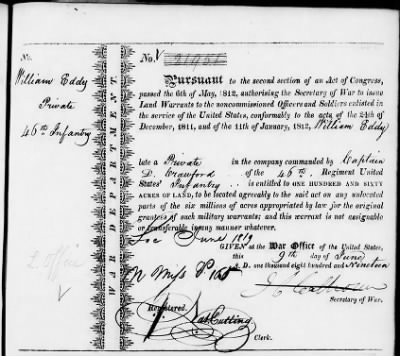 No.
William Eddy
Private
46th Infantry
WAR DEPARTMENT
No.
Pursuant to the second section of an Act of Congress,
passed the 6th of May, 1812, authorising the Secretary of War to issue
Land Warrants to the noncommissioned Officers and Soldiers enlisted in
the service of the United States, conformably to the acts of the 24th of
December, 1811, and of the 11th of January, 1812, William Eddy
late a Private in the company commanded by Captain
D. Crawford of the 46th Regiment United
States' Infantry is entitled to ONE HUNDRED AND SIXTY
ACRES OF LAND, to be located agreeably to the said act on any unlocated
parts of the six millions of acres appropriated by law for the original
grantees of such military warrants; and this warrant is not assignable
or transferable in any manner whatever.
Loc June 1819
GIVEN at the War Office of the United States,
this 9th day of June
A. D. one thousand eight hundred and Nineteen
J C Calhoun
Secretary of War.
Registered.
Nat Cutting
Clerk.